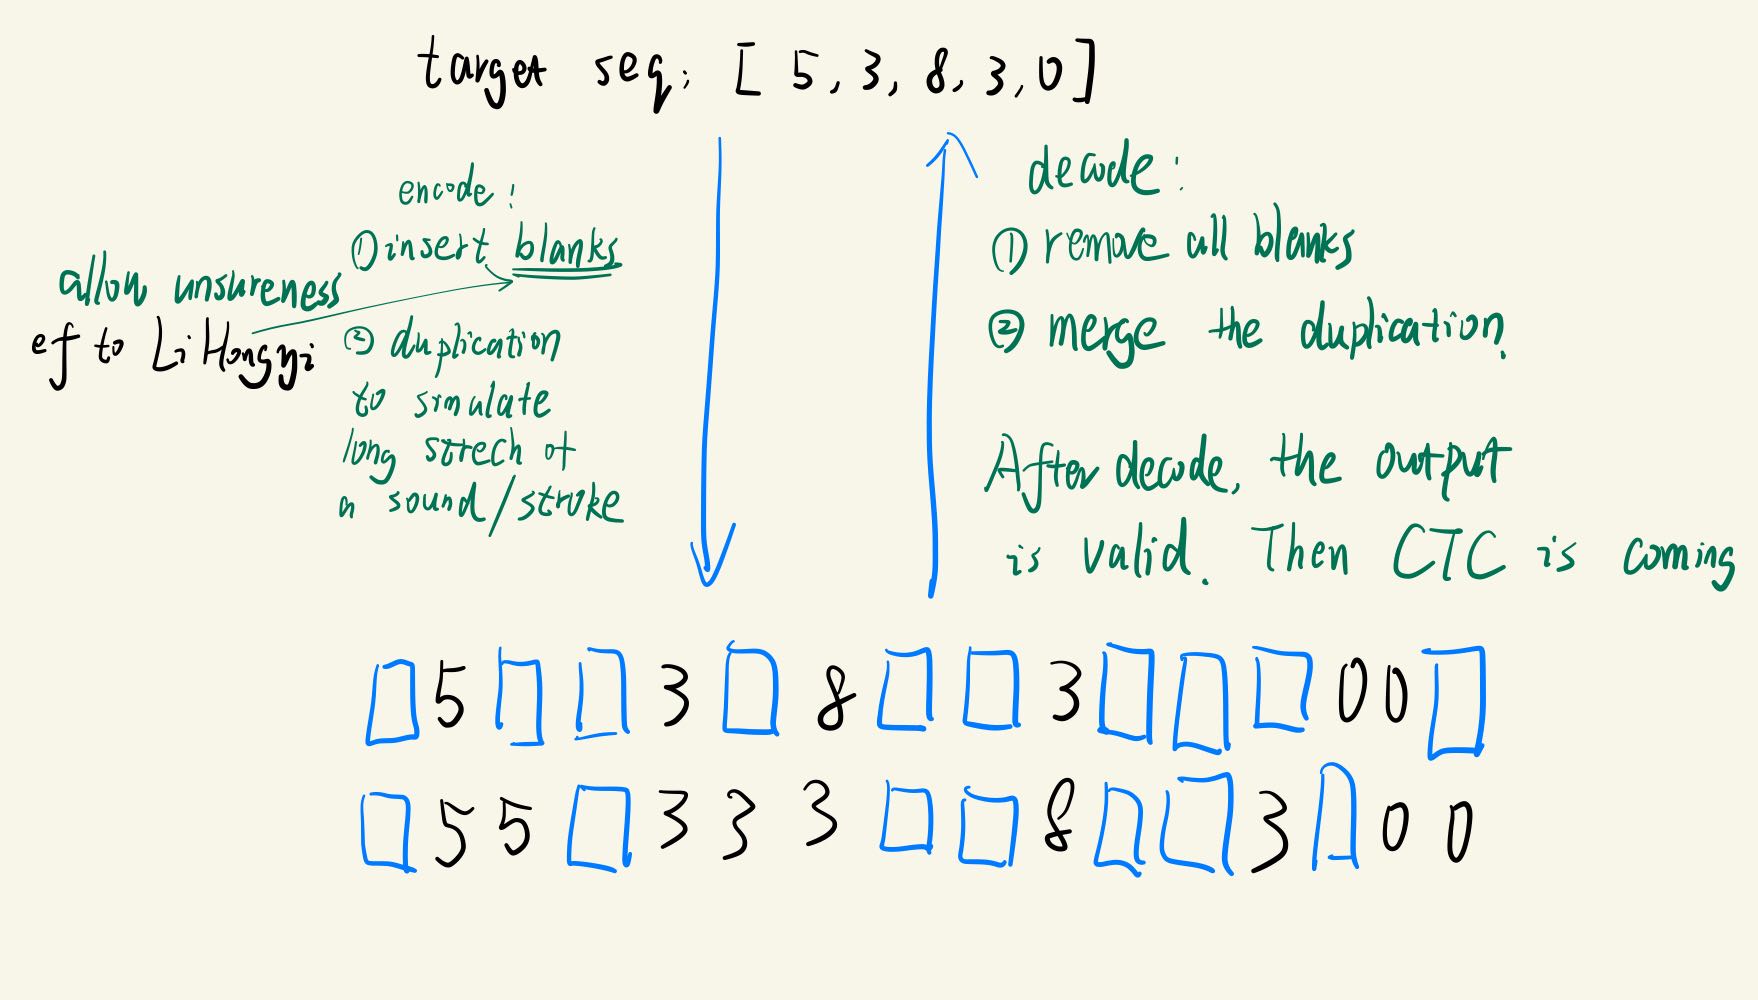 target seq: [ 5, 3, 8, 3, 0 ]
encode:
① insert blanks
allow unsureness
ef to Li Hongyi
② duplication
to simulate
long strech of
a sound/stroke
decode:
① remove all blanks
② merge the duplication.
After decode, the output
is valid. Then CTC is coming
□ 5 □ □ 3 □ 8 □ □ 3 □ □ □ 0 0 □
□ 5 5 □ 3 3 3 □ □ 8 □ □ 3 □ 0 0